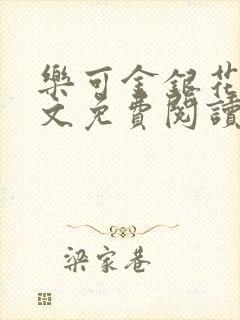 樂可金銀花
文免費閱讀
梁家巷